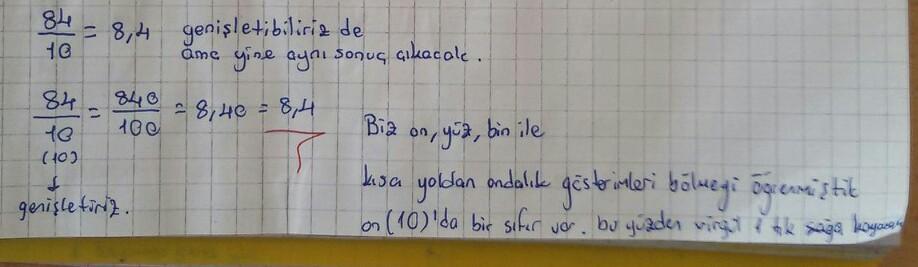 84/10 = 8,4 genişletibiliriz de
ama yine aynı sonuç çıkacak.
84/10 = 840/100 = 8,40 = 8,4
(10)
↓
genişletiriz.
Biz on, yüz, bin ile
kısa yoldan ondalık gösterimleri bölmeyi öğrenmiştik
on (10)'da bir sıfır var. bu yüzden virgül 1 tık sağa kayacak